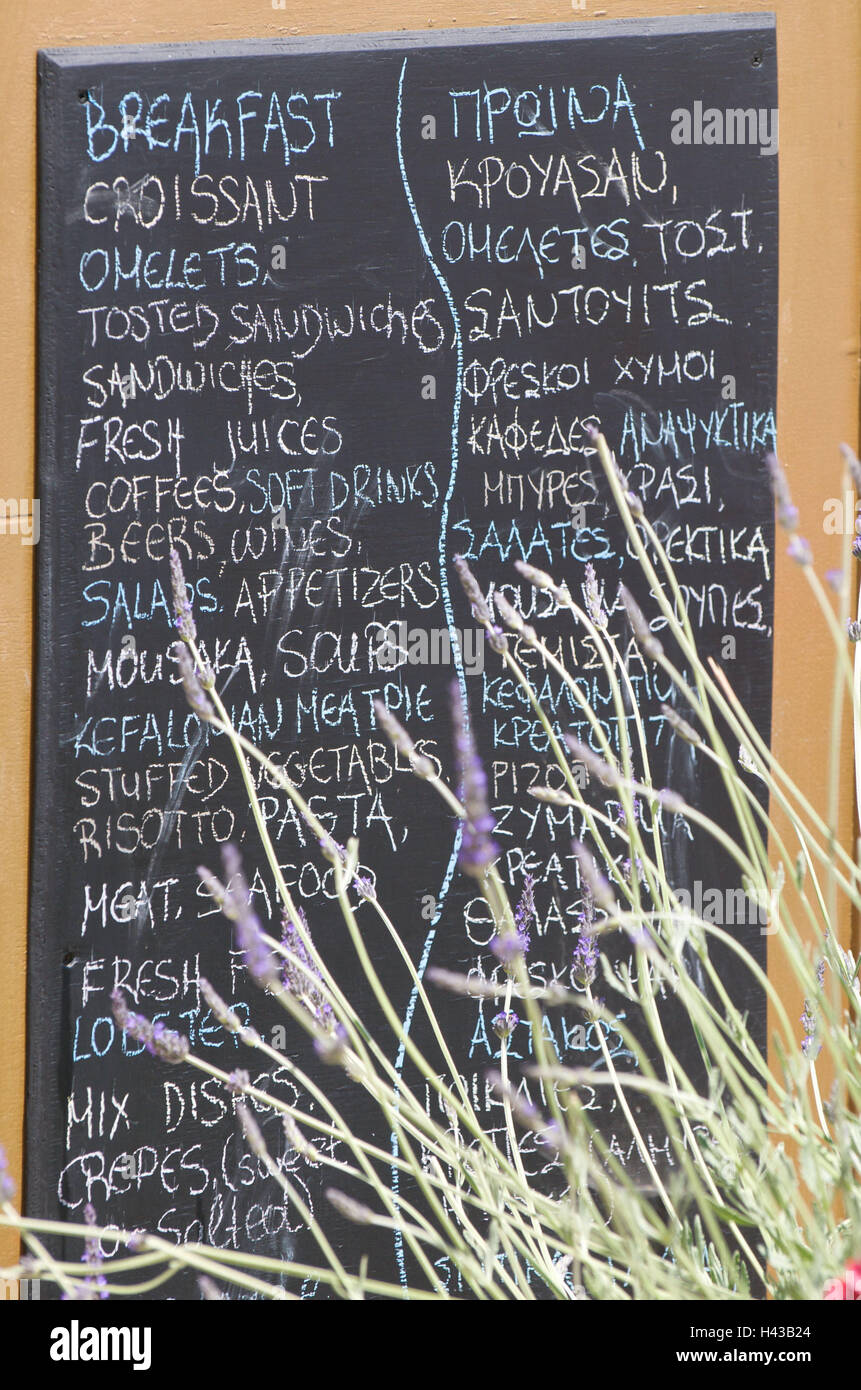 BREAKFAST
CROISSANT
OMELETS,
TOSTED SANDWICHES,
SANDWICHES,
FRESH JUICES
COFFEES, SOFT DRINKS
BEERS, WINES,
SALADS, APPETIZERS
MOUSAKA, SOUPS
KEFALONIAN MEATPIE
STUFFED VEGETABLES
RISOTTO, PASTA,
MEAT, SEAFOOD
FRESH
LOBSTER
MIX DISHES,
CREPES, (sweet
or Salted)
ΠΡΩΙΝΑ
ΚΡΟΥΑSΑΝ,
ΟΜΕΛΕΤΕS, ΤΟSΤ,
SΑΝΤΟΥΙΤS
ΦΡΕSΚΟΙ ΧΥΜΟΙ
ΚΑΦΕΔΕS ΑΝΑΨΥΚΤΙΚΑ
ΜΠΥΡΕS, ΚΡΑSΙ,
SΑΛΑΤΕS, ΟΡΕΚΤΙΚΑ
ΜΟΥSΑΚΑ, SΟΥΠΕS,
ΓΕΜΙSΤΑ
ΚΡΕΑΤΟΠΙΤ
ΖΥΜΑΡΙΚΑ
ΑSΤΑΚΟS
alamy
Image ID: H43B24
www.alamy.com